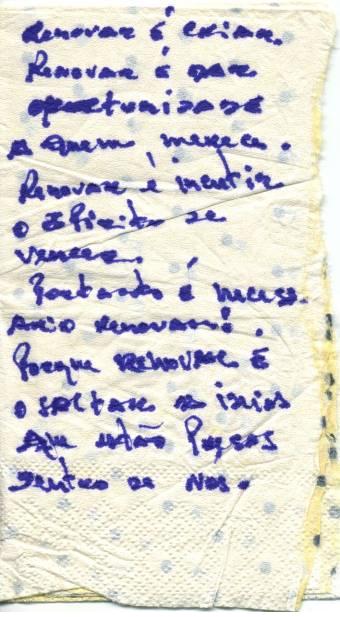 Renovar é criar.
Renovar é dar
oportunidade
a quem mereça.
Renovar é incutir
o Espirito de
vencer.
Portanto é necess-
ário renovar!.
Porque renovar é
o soltar de ideias
que estão presas
dentro de nós.